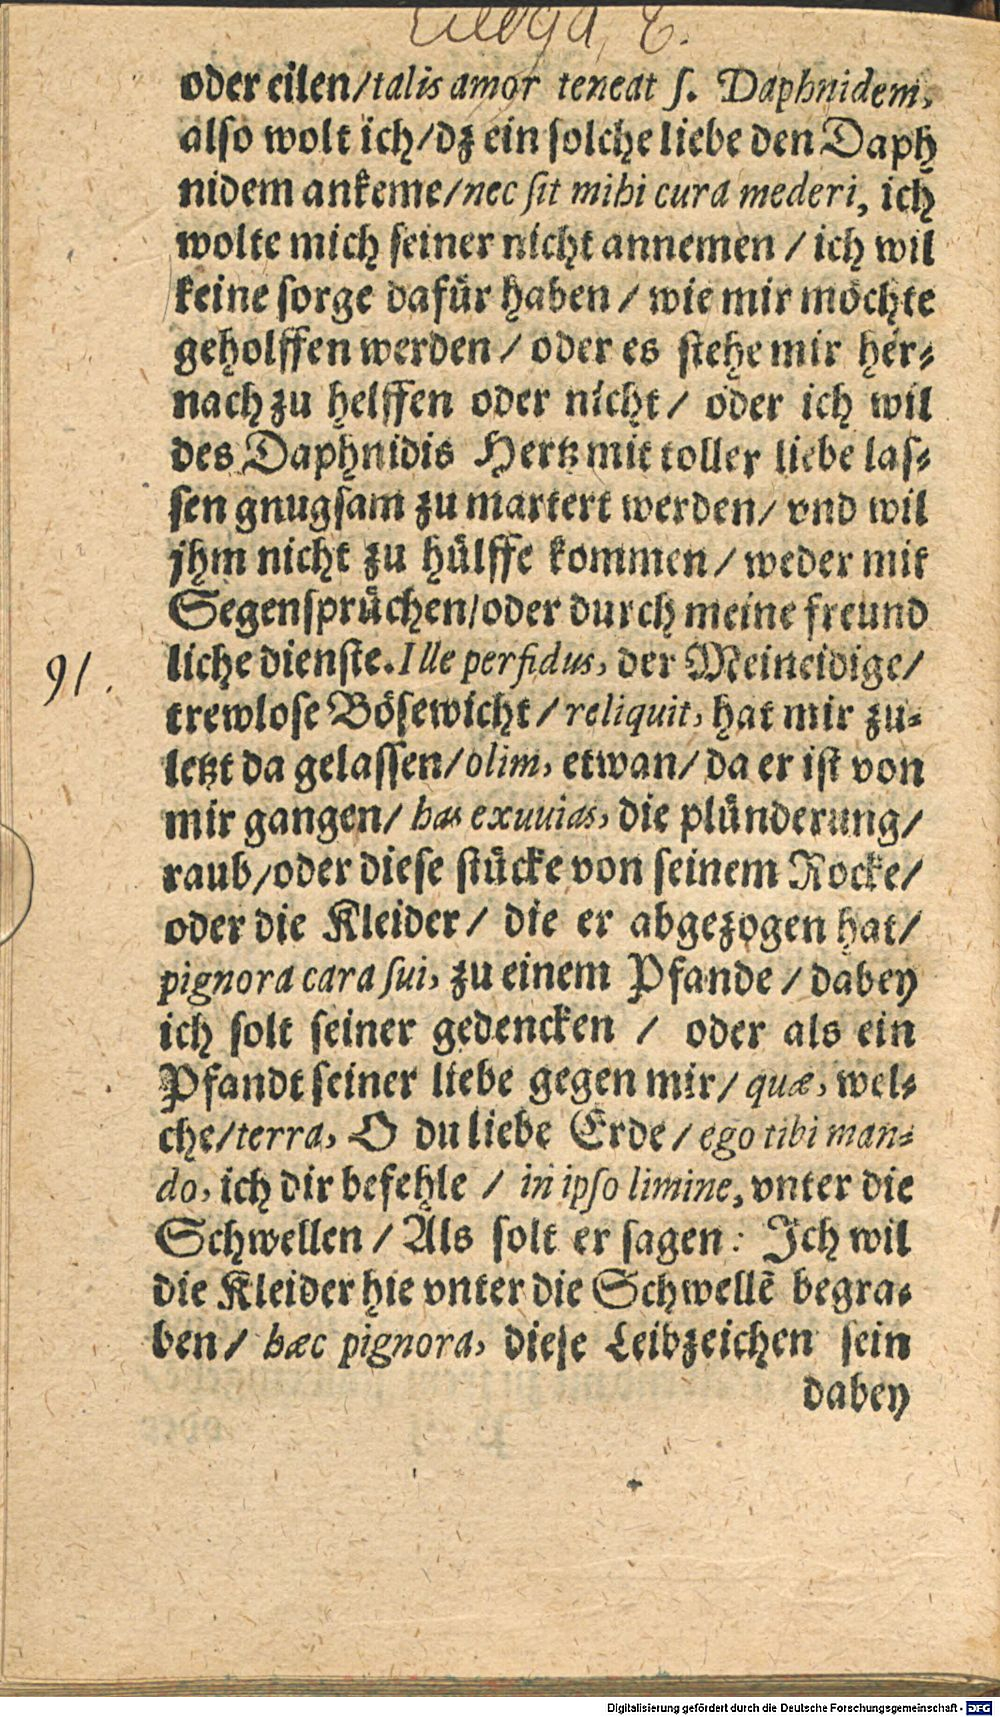 Ecloga, 8.
oder eilen/talis amor teneat ſ. Daphnidem,
alſo wolt ich/dz ein ſolche liebe den Daph
nidem ankeme/nec ſit mihi cura mederi, ich
wolte mich ſeiner nicht annemen / ich wil
keine ſorge dafür haben / wie mir möchte
geholffen werden / oder es ſtehe mir her⸗
nach zu helffen oder nicht / oder ich wil
des Daphnidis Hertz mit toller liebe laſ⸗
ſen gnugſam zu martert werden/ vnd wil
jhm nicht zu hülffe kommen / weder mit
Segenſprüchen/oder durch meine freund
liche dienſte. Ille perfidus, der Meineidige/
91.
trewloſe Böſewicht / reliquit, hat mir zu⸗
letzt da gelaſſen/olim, etwan/ da er iſt von
mir gangen/ has exuuias, die plünderung/
raub/oder dieſe ſtücke von ſeinem Rocke/
oder die Kleider / die er abgezogen hat/
pignora cara ſui, zu einem Pfande / dabey
ich ſolt ſeiner gedencken / oder als ein
Pfandt ſeiner liebe gegen mir/ quæ, wel⸗
che/terra, O du liebe Erde / ego tibi man⸗
do, ich dir befehle / in ipſo limine, vnter die
Schwellen / Als ſolt er ſagen: Ich wil
die Kleider hie vnter die Schwellẽ begra⸗
ben / hæc pignora, dieſe Leibzeichen ſein
dabey
Digitalisierung gefördert durch die Deutsche Forschungsgemeinschaft - DFG